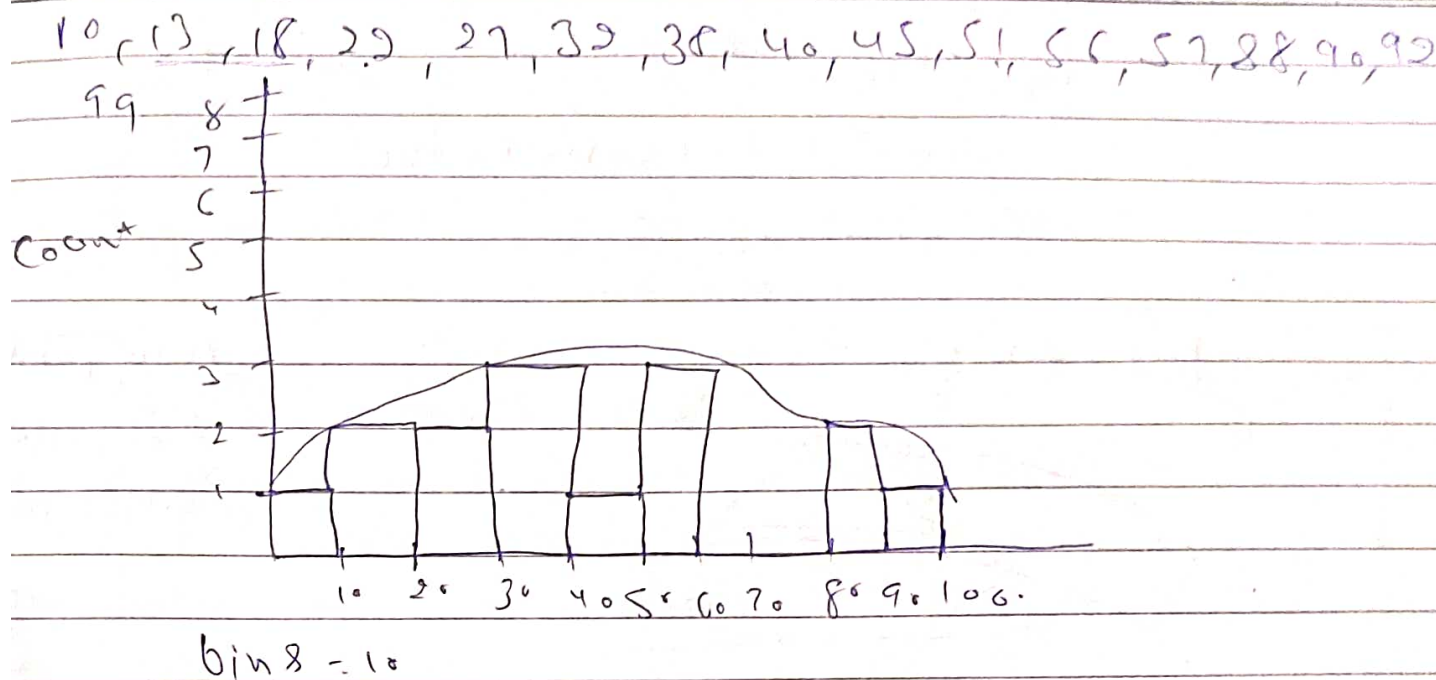 10, 13, 18, 22, 27, 32, 38, 40, 45, 51, 56, 57, 88, 90, 92
99
8
7
6
Count 5
4
3
2
1
10 20 30 40 50 60 70 80 90 100.
bins = 10